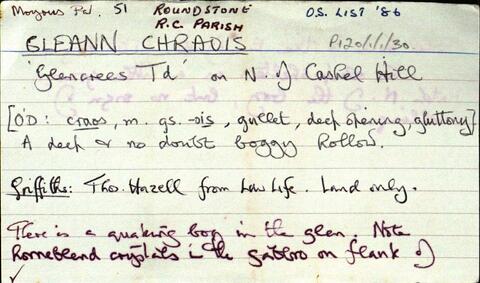 Moyrus Pd. 51 ROUNDSTONE R.C. PARISH O.S. LIST '86
GLEANN CHRAOIS P120/1/1/30
'Glencrees Td' on N. of Cashel Hill
[O'D: craos, m. gs. -ois, gullet, deep opening, gluttony]
A deep & no doubt boggy hollow.
Griffiths: Thos. Hazell from Law Life. Land only.
There is a quaking bog in the glen. Note
horneblend crystals in the gabbro on flank of
✓